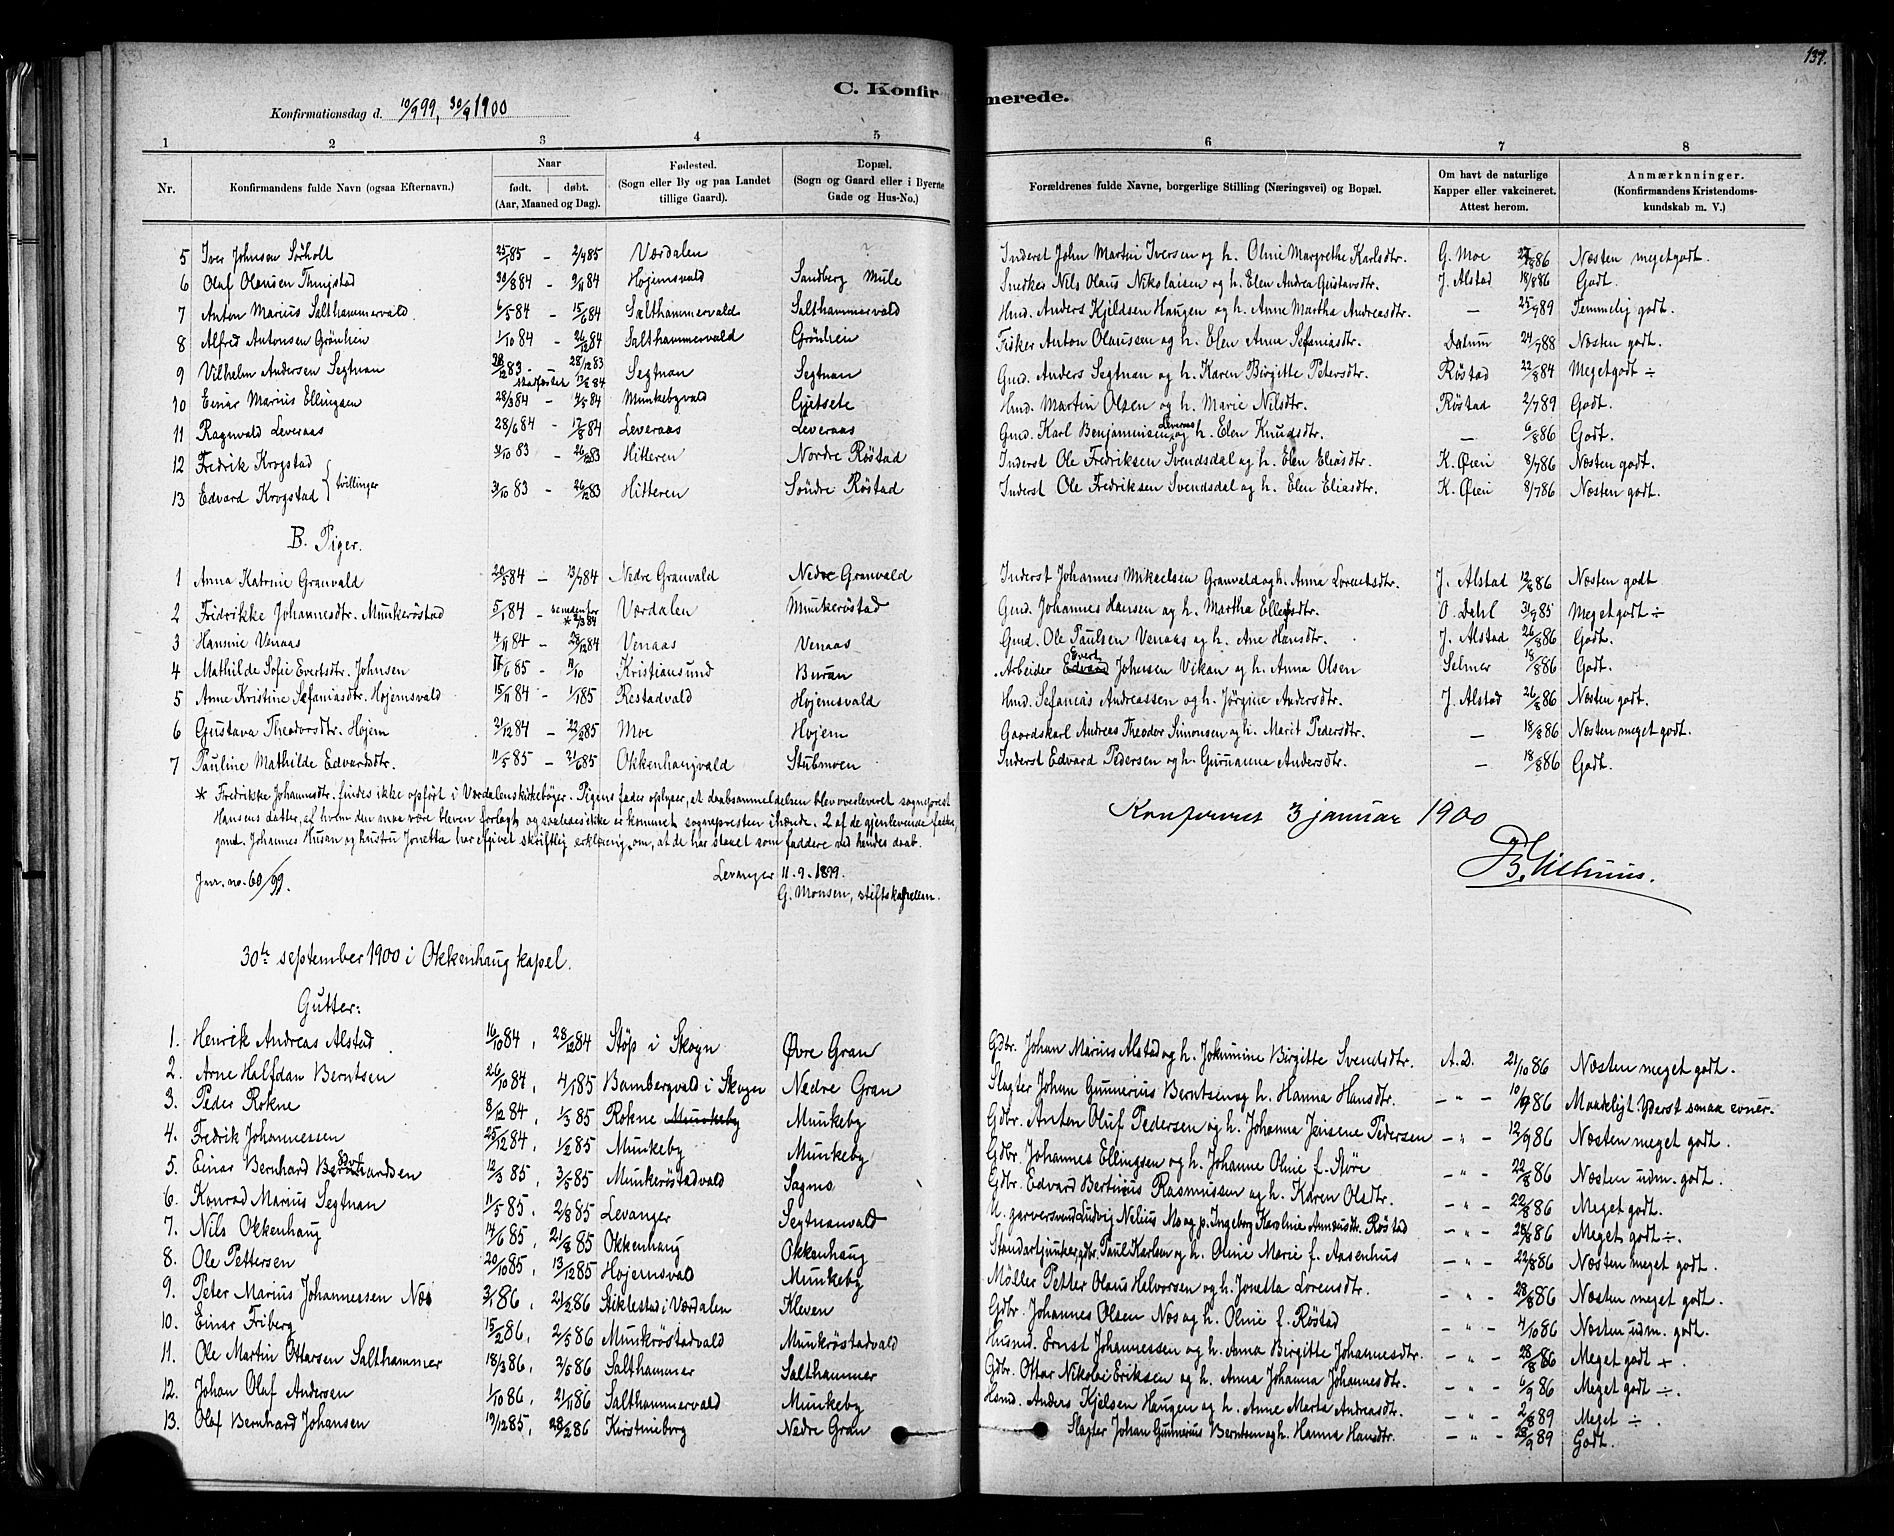 137.
C. Konfirmerede.
Konfirmationsdag d. 10/9 99, 30/9 1900
1 2 3 4 5 6 7 8
Nr. Konfirmandens fulde Navn (ogsaa Efternavn.) Naar født. døbt. (Aar, Maaned og Dag). Fødested. (Sogn eller By og paa Landet tillige Gaard). Bopæl. (Sogn og Gaard eller i Byerne Gade og Hus-No.) Forældrenes fulde Navne, borgerlige Stilling (Næringsvei) og Bopæl. Om havt de naturlige Kapper eller vakcineret. Attest herom. Anmærknninger. (Konfirmandens Kristendomskundskab m. V.)
5 Iver Johnsen Sørholt 85 – 2/4 85 Værdalen ? Inderst John Martin Iversen og h. Oline Margrethe Karlsdtr. G. Moe 86 Næsten megetgodt.
6 Olaf Olausen Thingstad 30/8 84 – 9/11 84 Højemsvald Sandberg Mule Snedker Nils Olaus Nikolaisen og h. Elen Andrea Gustavsdtr. J. Alstad 18/8 86 Godt.
7 Anton Marius Salthammervald. 6/5 84 – 15/6 84 Salthammervald Salthammervald Hmd. Anders Kjeldsen Haugen og h. Anne Martha Andreasdtr. – 25/9 89 Temmelig godt.
8 Alfred Antonsen Grønlien 1/10 84 – 26/12 84 Salthammervald Grønlien Fisker Anton Olaussen og h. Elen Anna Sefaniasdtr. Dalum 24/9 88 Næsten godt.
9 Vilhelm Andersen Segtnan 28/12 83 – 28/12 83 stadfæstet 13/4 84 Segtnan Segtnan Gmd. Anders Segtnan og h. Karen Birgitte Petersdtr. Røstad 22/8 84 Megetgodt ÷
10 Einar Marius Ellingsen 28/3 84 – 4/5 84 Munkebyvald Gjetsete Hmd. Martin Olsen og h. Marie Nilsdtr. Røstad 2/7 89 Godt.
11 Ragnvald Leveraas 28/6 84 – 17/8 84 Leveraas Leveraas Gmd. Karl Benjaminsen Leveraas og h. Elen Knudsdtr. – 6/8 86 Godt.
12 Fredrik Krogstad 31/10 83 – 26/12 83 Hitteren Nordre Røstad Inderst Ole Fredriksen Svendsdal og h. Elen Eliasdtr. K. Øien 8/7 86 Næsten godt.
13 Edvard Krogstad } tvillinger 31/10 83 – 26/12 83 Hitteren Søndre Røstad Inderst Ole Fredriksen Svendsdal og h. Elen Eliasdtr. K. Øien 8/7 86 Næsten godt.
B. Piger.
1 Anna Katrine Granvald 20/5 84 – 13/7 84 Nedre Granvald Nedre Granvald Inderst Johannes Mikaelsen Granvald og h. Anna Lorentsdtr. J. Alstad 12/8 86 Næsten godt
2 Fredrikke Johannesdtr. Munkerøstad 5/1 84 – * 2/3 84 Værdalen Munkerøstad Gmd. Johannes Hansen og h. Martha Ellefsdtr. O. Dahl 31/9 85 Megetgodt ÷
3 Hannie Venaas 4/11 84 – 28/12 84 Venaas Venaas Gmd. Ole Paulsen Venaas og h. Ane Hansdtr. J. Alstad 26/8 86 Godt.
4 Mathilde Sofie Evertsdtr. Johnsen 17/6 85 – 11/10 Kristiansund Buran Arbeider Edvard Evert Johnsen Vikan og h. Anna Olsen Selmer 18/8 86 Godt.
5 Anne Kristine Sefaniasdtr. Højemsvald 15/11 84 – 1/1 85 Restadvald Højemsvald Hmd. Sefanias Andreassen og h. Jørgine Andersdtr. J. Alstad 26/8 86 Næsten godt.
6 Gustava Theodorsdtr. Højem 21/12 84 – 22/2 85 Moe Højem Gaardskarl Andreas Theodor Simonsen og h. Marit Pedersdtr. – 18/8 86 Næsten meget godt.
7 Pauline Mathilde Edvardsdtr. 11/5 85 – 21/6 85 Okkenhaugvald Stubmoen Inderst Edvard Pedersen og h. Gurianna Andersdtr. – 18/8 86 Godt.
* Fredrikke Johannesdtr. findes ikke opført i Værdalens kirkebøger. Pigens fader oplyser, at daabsanmeldelsen blev overleveret sogneprest
Hansens datter, af hvem den maa være bleven forlagt og saaledes ikke er kommet sognepresten ihænde. 2 af de gjenlevende faddere,
gmd. Johannes Husan og hustru Jonetta har afgivet skriftlig erklæring om, at de har staaet som faddere ved hendes daab.
Jnr. no. 60/99. Levanger 11.9.1899.
G. Monsen, stiftskapellan.
Konfereret 3 januar 1900
30te september 1900 i Okkenhaug kapel.
Gutter:
1. Henrik Andreas Alstad 16/10 84, 28/12 84 Støp i Skogn Øvre Gran Gdbr. Johan Marius Alstad og h. Jokumine Birgitte Svendsdtr. A.D. 21/10 86 Næsten meget godt.
2. Arne Halfdan Berntsen 26/10 84, 4/1 85 Bambergvald i Skogn Nedre Gran Slagter Johan Gunnerius Berntsen og h. Hanna Hansdtr. – " – 10/9 86 Maadeligt. Yderst smaa evner.
3. Peder Rokne 8/12 84, 1/3 85 Rokne Munkeby Munkeby Gdbr. Anton Oluf Pedersen og h. Johanna Jensine Pedersen – " – 12/9 86 Næsten meget godt.
4. Fredrik Johannessen 25/12 84, 1/2 85 Munkeby Munkeby Gdbr. Johannes Ellingsen og h. Johanne Oline f. Støre – " – 22/8 86 Næsten udm. godt.
5. Einar Bernhard Bernhardsen 12/3 85, 3/5 85 Munkerøstadvald Sagmo Gdbr. Edvard Bertinius Rasmussen og h. Karen Olsdtr. – " – 22/8 86 Meget godt.
6. Konrad Marius Segtnan 11/5 85, 2/8 85 Levanger Segtnanvald U. garversvend Ludvig Nelius Mo og p. Ingeborg Karoline Røstad – " – 28/8 86 Meget godt ÷.
7. Nils Okkenhaug 14/6 85, 21/8 85 Okkenhaug Okkenhaug Standartjunker, gdbr. Paul Karlsen og h. Oline Marie f. Aasenhus – " – 22/8 86 Næsten meget godt.
8. Ole Pettersen 20/10 85, 13/12 85 Højemsvald Munkeby Møller Petter Olaus Helvorsen og h. Jonetta Lorensdtr. – " – 28/8 86 Næsten meget godt.
9. Peter Marius Johannessen Nes 3/1 86, 21/2 86 Stiklestad i Værdalen Kleven Gdbr. Johannes Olsen Nes og h. Oline f. Røstad – " – 4/10 86 Næsten udm. godt.
10. Einar Friberg 15/2 86, 2/5 86 Munkrøstadvald Munkrøstadvald Husmd. Ernst Johannessen og h. Anna Birgitte Johannesdtr. – " – 28/8 86 Meget godt +.
11. Ole Martin Ottarsen Salthammer 18/3 86, 2/5 86 Salthammer Salthammer Gdbr. Ottar Nikolai Eriksen og h. Anna Johanna Johannesdtr. – " – 6/9 86 Meget godt ÷.
12. Johan Olaf Andersen 1/10 86, 21/11 86 Salthammervald Munkeby Hsmd. Anders Kjelsen Haugen og h. Anne Marta Andreasdtr. – " – 2/8 89 Meget ÷.
13. Olaf Bernhard Johansen 19/12 85, 28/2 86 Kirstineborg Nedre Gran Slagter Johan Gunnerius Berntsen og h. Hanna Hansdtr. – " – 23/9 89 Godt.